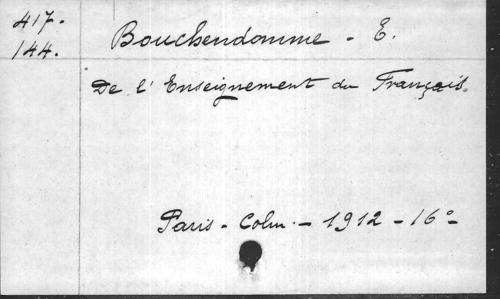 417.
144.
Bouchendomme - E.
De l'Enseignement du Français.
Paris - Colin - 1912 - 16°-